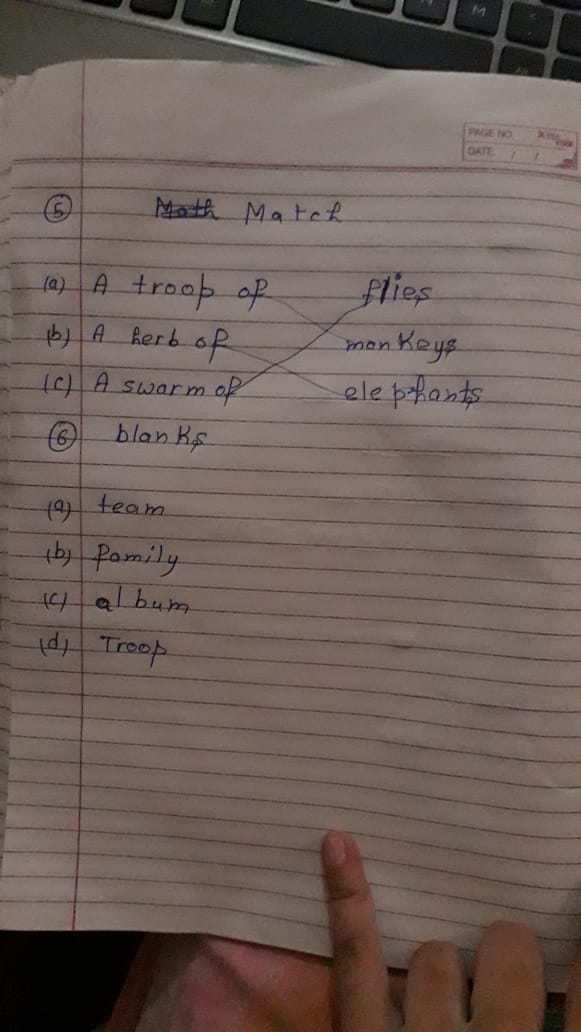 M
PAGE NO
DATE / /
5 Math Match
(a) A troop of flies
(b) A herb of monkeys
(c) A swarm of elephants
6 blanks
(a) team
(b) family
(c) album
(d) Troop